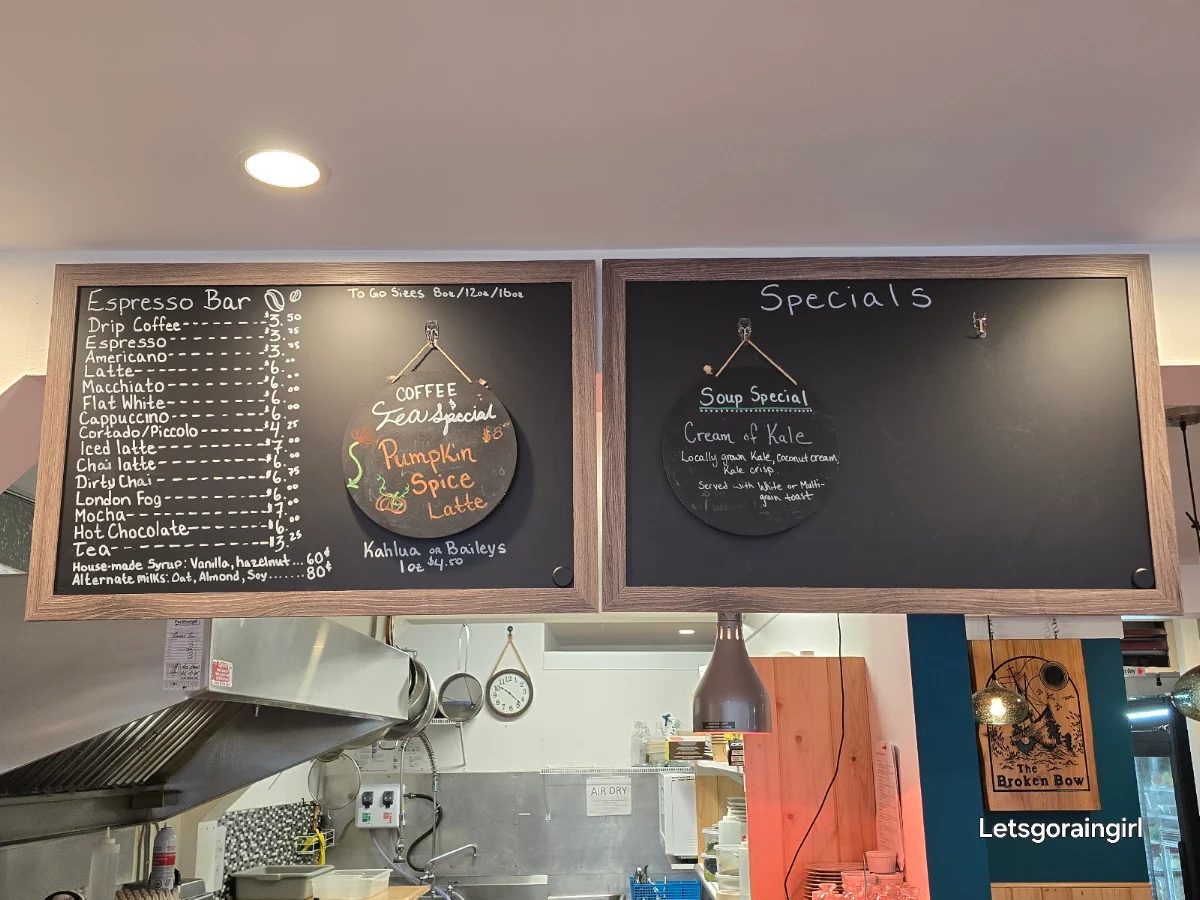 Espresso Bar
Drip Coffee------- $3.50
Espresso --------- $3.25
Americano --------- $3.25
Latte------------- $6.00
Macchiato --------- $6.00
Flat White -------- $6.00
Cappuccino -------- $6.00
Cortado/Piccolo ---- $4.25
Iced latte --------- $7.00
Chai latte --------- $6.00
Dirty Chai --------- $6.75
London Fog -------- $6.00
Mocha ------------- $7.00
Hot Chocolate ------ $6.00
Tea --------------- $3.25
House-made Syrup: Vanilla, hazelnut... 60¢
Alternate milks: Oat, Almond, Soy....... 80¢
To Go Sizes 8oz/12oz/16oz
COFFEE
&
Tea Special
$8
Pumpkin
Spice
Latte
Kahlua OR Baileys
1oz $4.50
Specials
Soup Special
Cream of Kale
Locally grown Kale, coconut cream,
Kale crisp.
Served with White or Multi-
grain toast
AIR DRY
The
Broken Bow
Letsgoraingirl